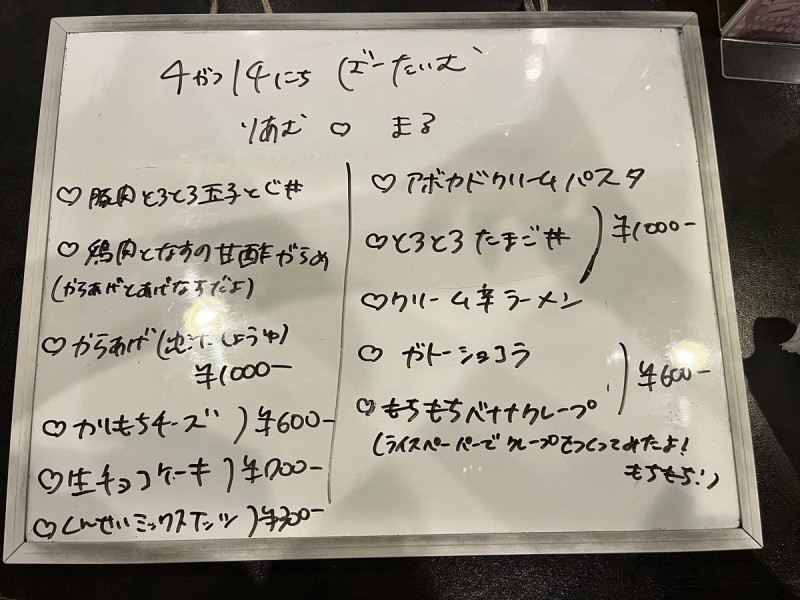 4がつ14にち ばーたいむ
りあむ ♡ まる
♡豚肉とろとろ玉子とじ丼
♡鶏肉となすの甘酢がらめ
(からあげとあげなすだよ)
♡からあげ(出汁しょうゆ)
¥1000-
♡かりもちチーズ)¥600-
♡生チョコケーキ)¥700-
♡くんせいミックスナッツ)¥300-
♡アボカドクリームパスタ
♡とろとろたまご丼 )¥1000-
♡クリーム辛ラーメン
♡ガトーショコラ
)¥600-
♡もちもちバナナクレープ
(ライスペーパーでクレープをつくってみたよ!
もちもち!)